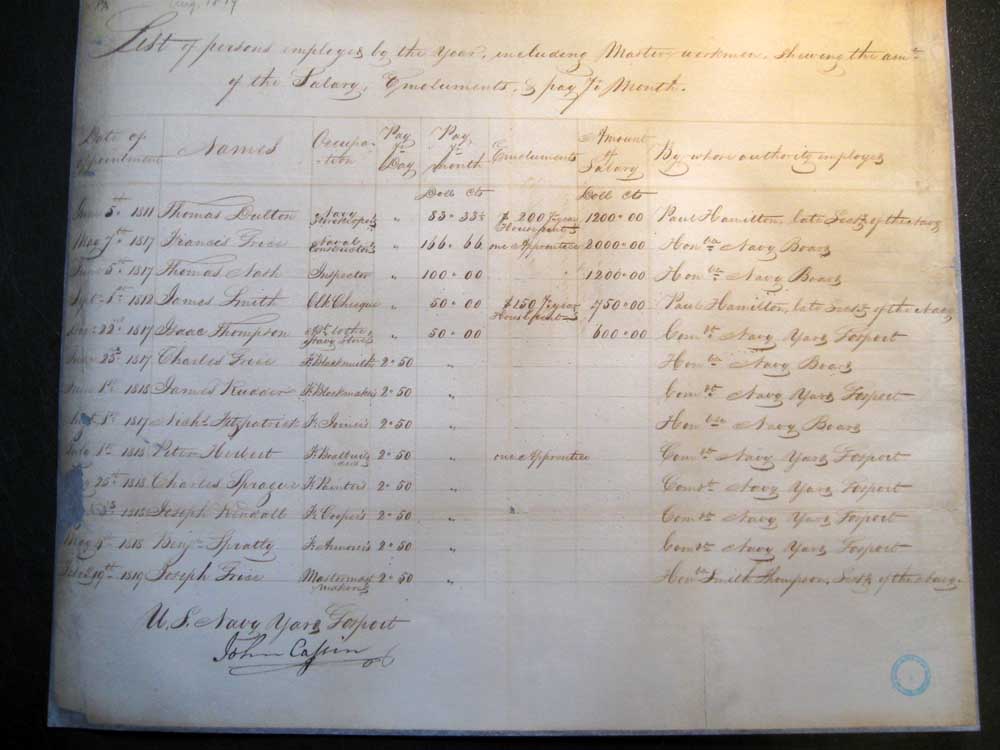 Aug. 1819
List of persons employed by the Year, including Master workmen, shewing the amt
of the Salary, Emoluments, & pay pr Month.
Date of appointment Names Occupation Pay pr Day Pay pr Month Emoluments Amount of Salary By whose authority employed
Dolls Cts Dolls Cts
June 5th 1811 Thomas Dalton Navy Storekeeper " 83 " 33⅓ $200 pr year Houserent 1200 " 00 Paul Hamilton, late Secty of the Navy
May 7th 1817 Francis Grice Naval Constructor " 166 " 66 one Apprentice 2000 " 00 Honble Navy Board
June 5th 1817 Thomas Nash Inspector " 100 " 00 " 1200 " 00 Honble Navy Board
Sept 1st 1812 James Smith Clk Cheque " 50 " 00 $150 pr year Houserent 750 " 00 Paul Hamilton, late Secty of the Navy
22nd 1817 Isaac Thompson Navy Store " 50 " 00 600 " 00 Comdt Navy Yard Gosport
June 23d 1817 Charles Grice Fr Blacksmith 2 " 50 " Honble Navy Board
June 1st 1818 James Rudder Fr Blockmaker 2 " 50 " Comdt Navy Yard Gosport
1st 1817 Nichs Fitzpatrick Fr Joiners 2 " 50 " Honble Navy Board
July 1st 1818 Peter Herbert Fr Boatbuilders 2 " 50 " one Apprentice Comdt Navy Yard Gosport
25th 1818 Charles Sprague Fr Painters 2 " 50 " Comdt Navy Yard Gosport
1818 Joseph Kendall Fr Coopers 2 " 50 " Comdt Navy Yard Gosport
May 4th 1818 Benjn Spratty Fr Armorers 2 " 50 " Comdt Navy Yard Gosport
Feb 19th 1819 Joseph Grice Master mast makers 2 " 50 " Honble Smith Thompson, Secty of the Navy.
U.S. Navy Yard Gosport
John Cassin